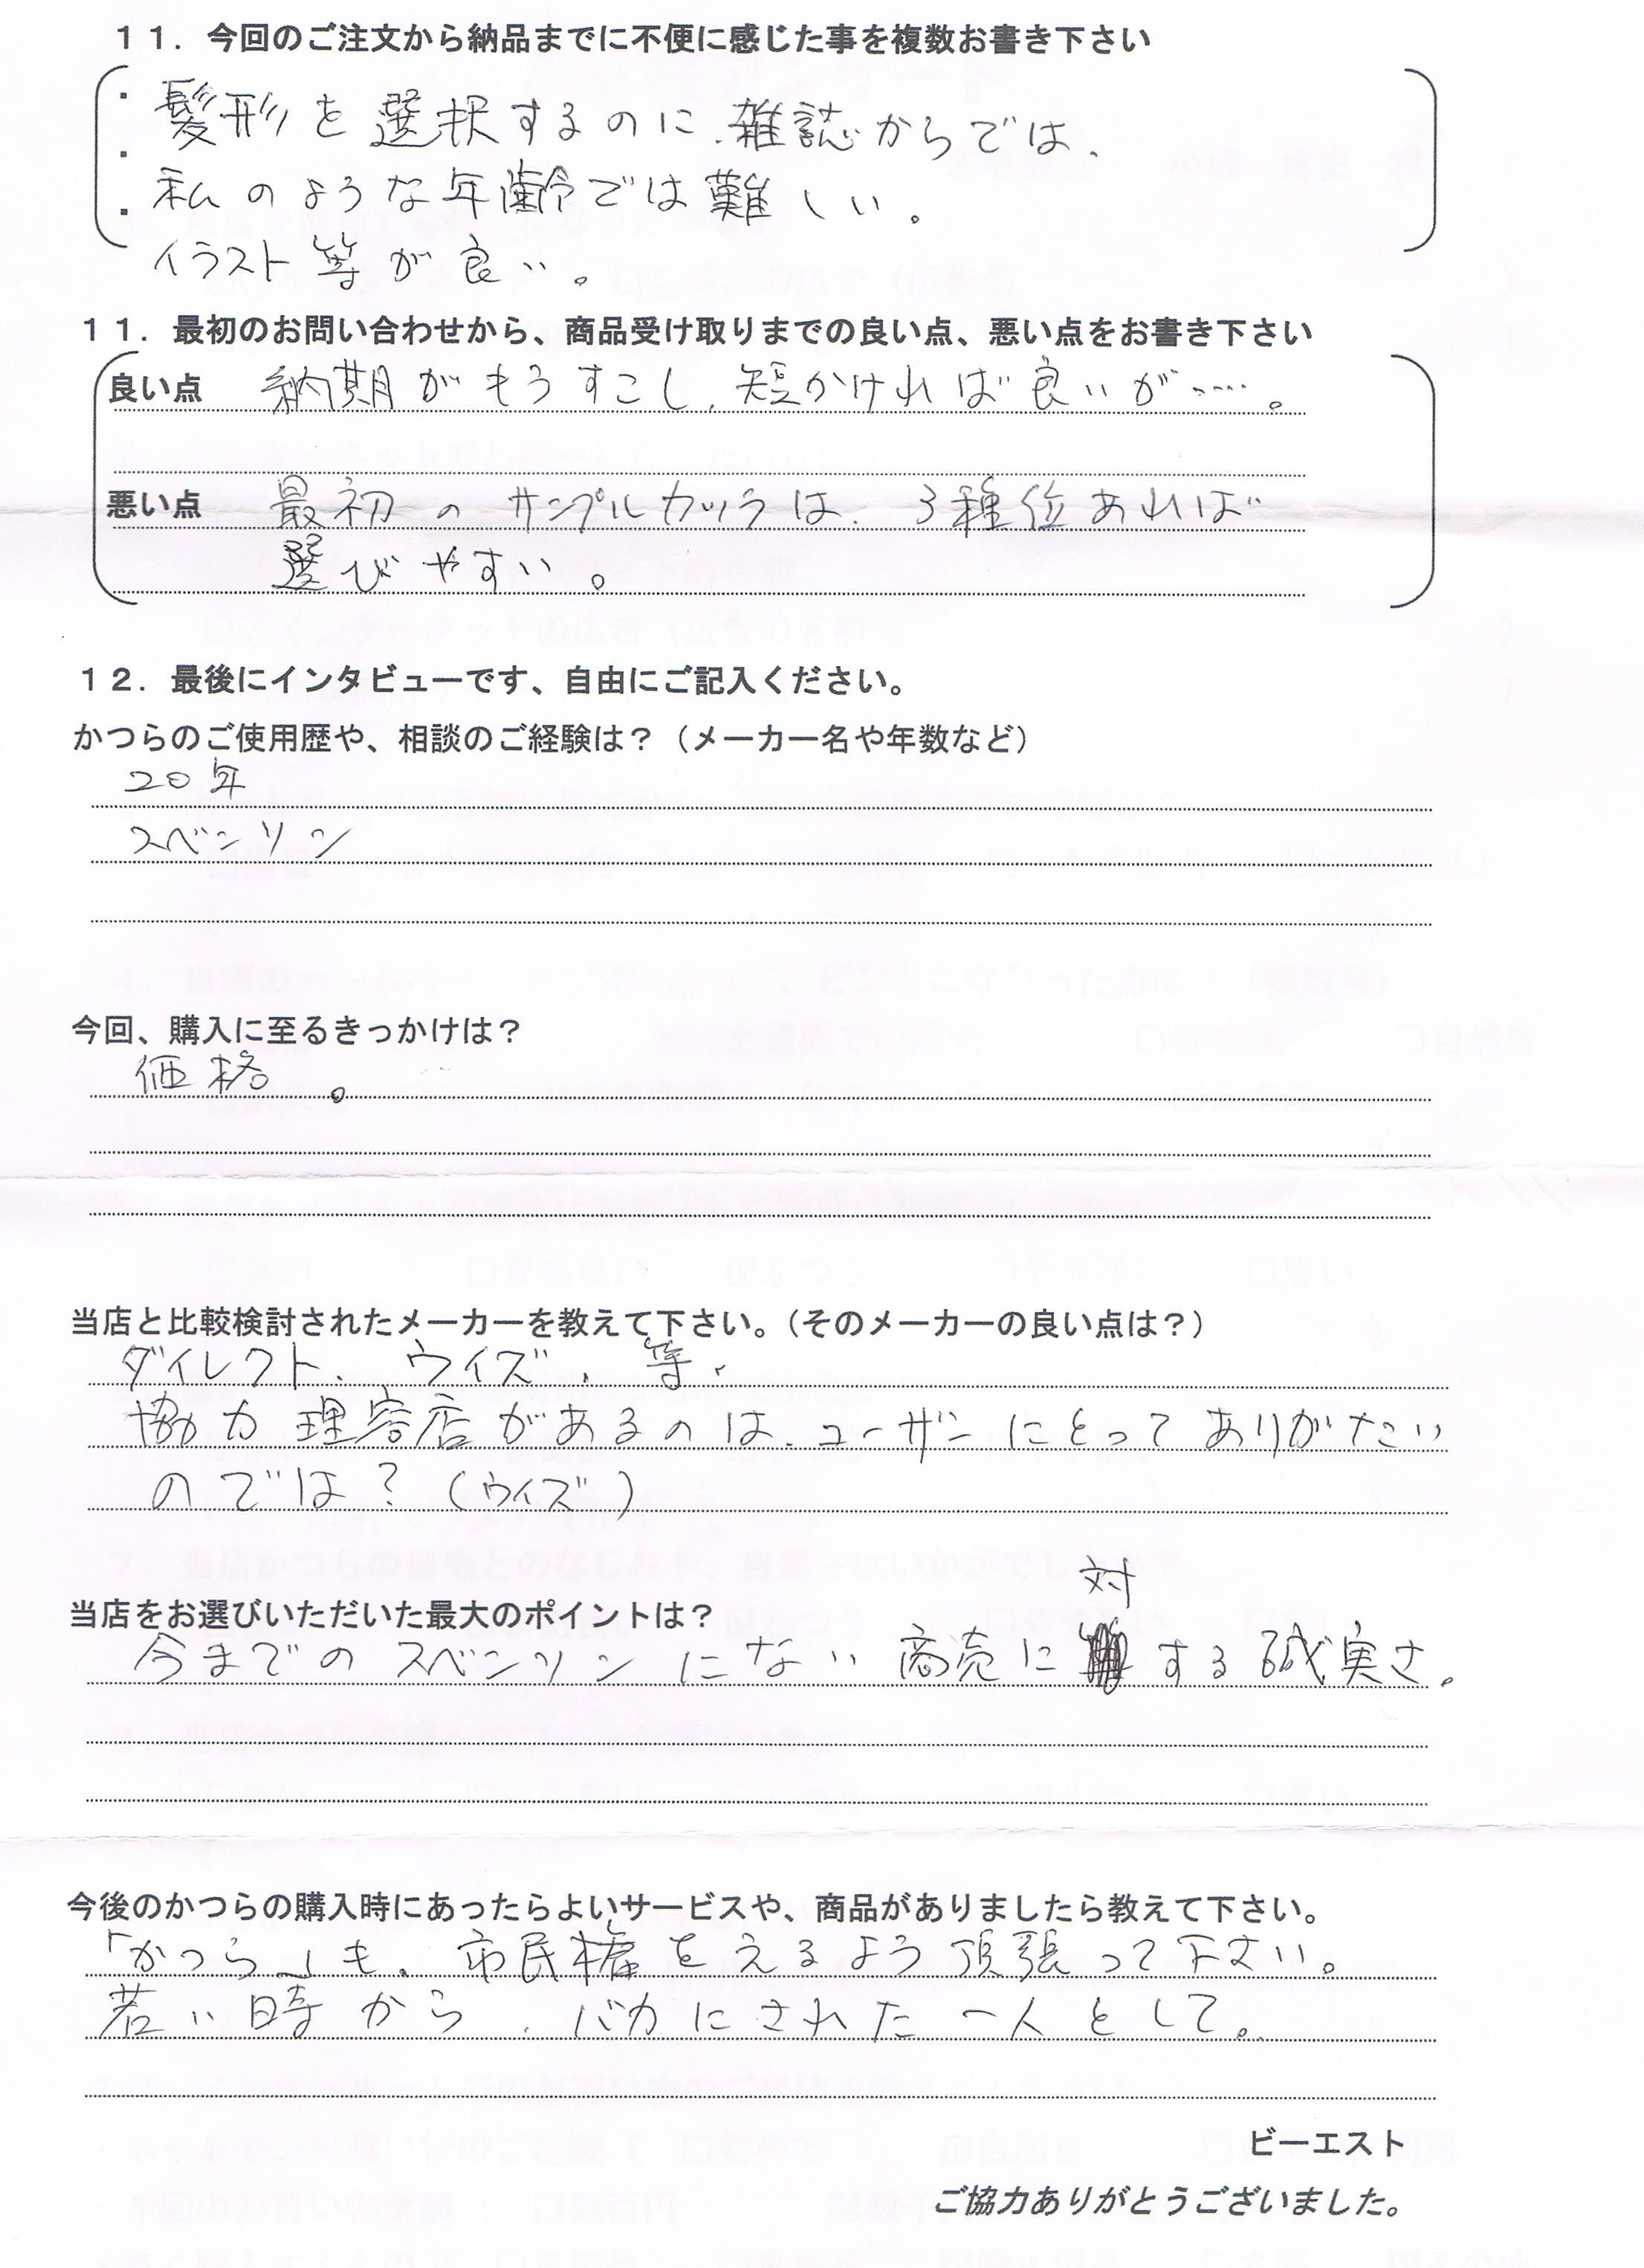 １１．今回のご注文から納品までに不便に感じた事を複数お書き下さい
・髪形を選択するのに、雑誌からでは、
・私のような年齢では難しい。
・イラスト等が良い。
１１．最初のお問い合わせから、商品受け取りまでの良い点、悪い点をお書き下さい
良い点　納期がもうすこし、短かければ良いが……。
悪い点　最初のサンプルカツラは、３種位あれば
選びやすい。
１２．最後にインタビューです、自由にご記入ください。
かつらのご使用歴や、相談のご経験は？（メーカー名や年数など）
20年
スベンソン
今回、購入に至るきっかけは？
価格。
当店と比較検討されたメーカーを教えて下さい。（そのメーカーの良い点は？）
ダイレクト、ウイズ、等、
協力理容店があるのは、ユーザーにとってありがたい
のでは？（ウイズ）
当店をお選びいただいた最大のポイントは？
今までのスベンソンにない商売に対する誠実さ。
今後のかつらの購入時にあったらよいサービスや、商品がありましたら教えて下さい。
「かつら」も、市民権をえるよう頑張って下さい。
若い時から、バカにされた一人として。
ビーエスト
ご協力ありがとうございました。